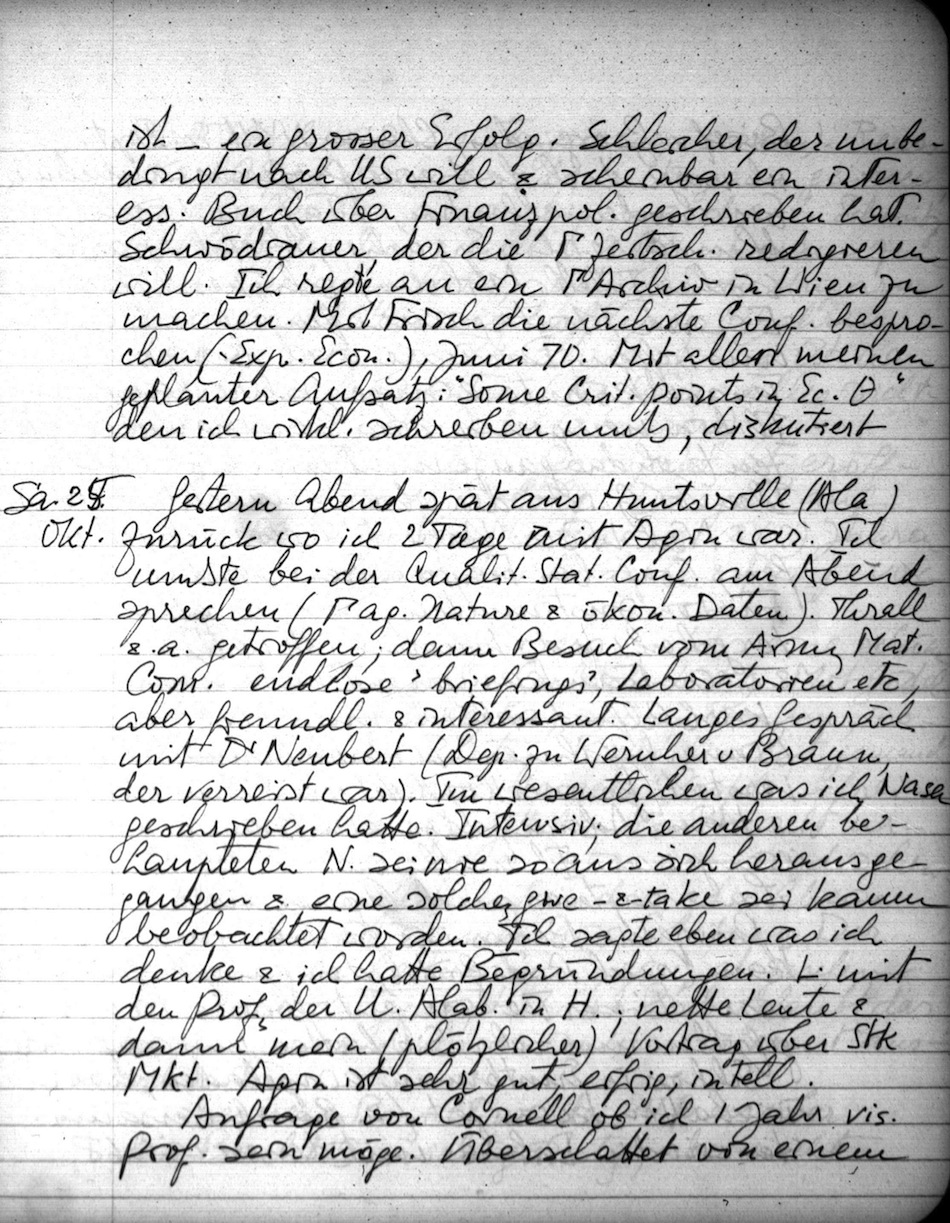 ist – ein grosser Erfolg. Schleicher, der unbe-
dingt nach US will & scheinbar ein inter-
ess. Buch über Finanzpol. geschrieben hat.
Schwödiauer, der die Γ Zeitsch. redigieren
will. Ich regte an ein Γ Archiv in Wien zu
machen. Mit Frisch die nächste Conf. bespro-
chen (Exp. Econ.), Juni 70. Mit allen meinen
geplanter Aufsatz: "Some Crit. points in Ec. Θ"
den ich wirkl. schreiben muß, diskutiert
Sa. 25. Gestern Abend spät aus Huntsville (Ala)
Okt. zurück wo ich 2 Tage mit Agin war. Ich
musste bei der Qualit. Stat. Conf. am Abend
sprechen (Γ ag. Nature & ökon. Daten). Thrall
& a. getroffen; dann Besuch vom Army Mat.
Com. endlose 'briefings', Laboratorien etc,
aber freundl. & interessant. Langes Gespräch
mit Dr Neubert (Dep. zu Wernher v Braun,
der verreist war). Im wesentlichen was ich Nasa
geschrieben hatte. Intensiv; die anderen be-
haupteten N. sei nie so aus sich herausge-
gangen & eine solche give-&-take sei kaum
beobachtet worden. Ich sagte eben was ich
denke & ich hatte Begründungen. L. mit
den Prof. der U. Alab. in H.; nette Leute &
dann mein (plötzlicher) Vortrag über Stk
Mkt. Agin ist sehr gut, eifrig, intell.
Anfrage von Cornell ob ich 1 Jahr vis.
Prof. sein möge. Überschattet von einem